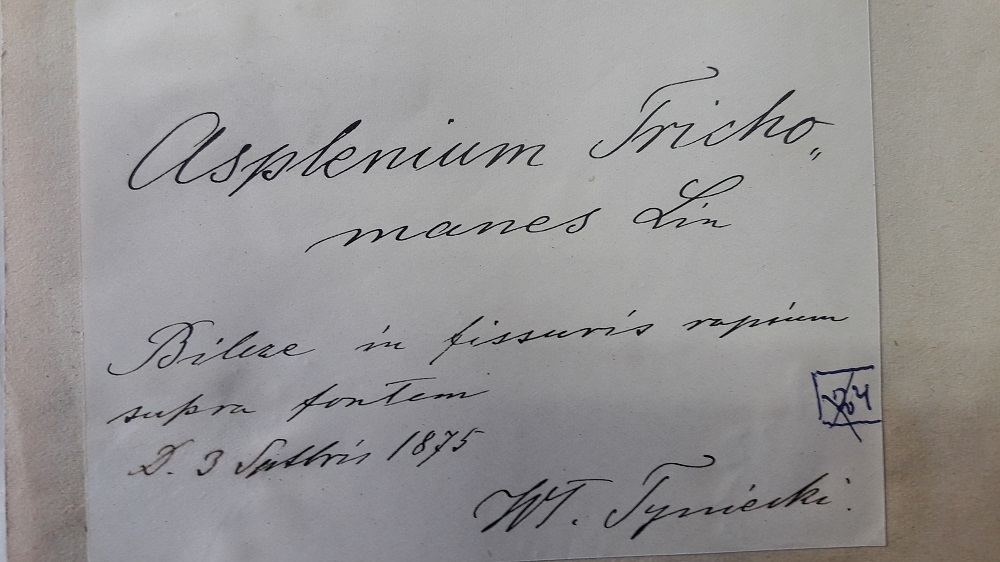 Asplenium Tricho„
manes Lin
Bilcze in fissuris rupium
supra fontem
D. 3 Septbris 1875
Wł. Tyniecki.